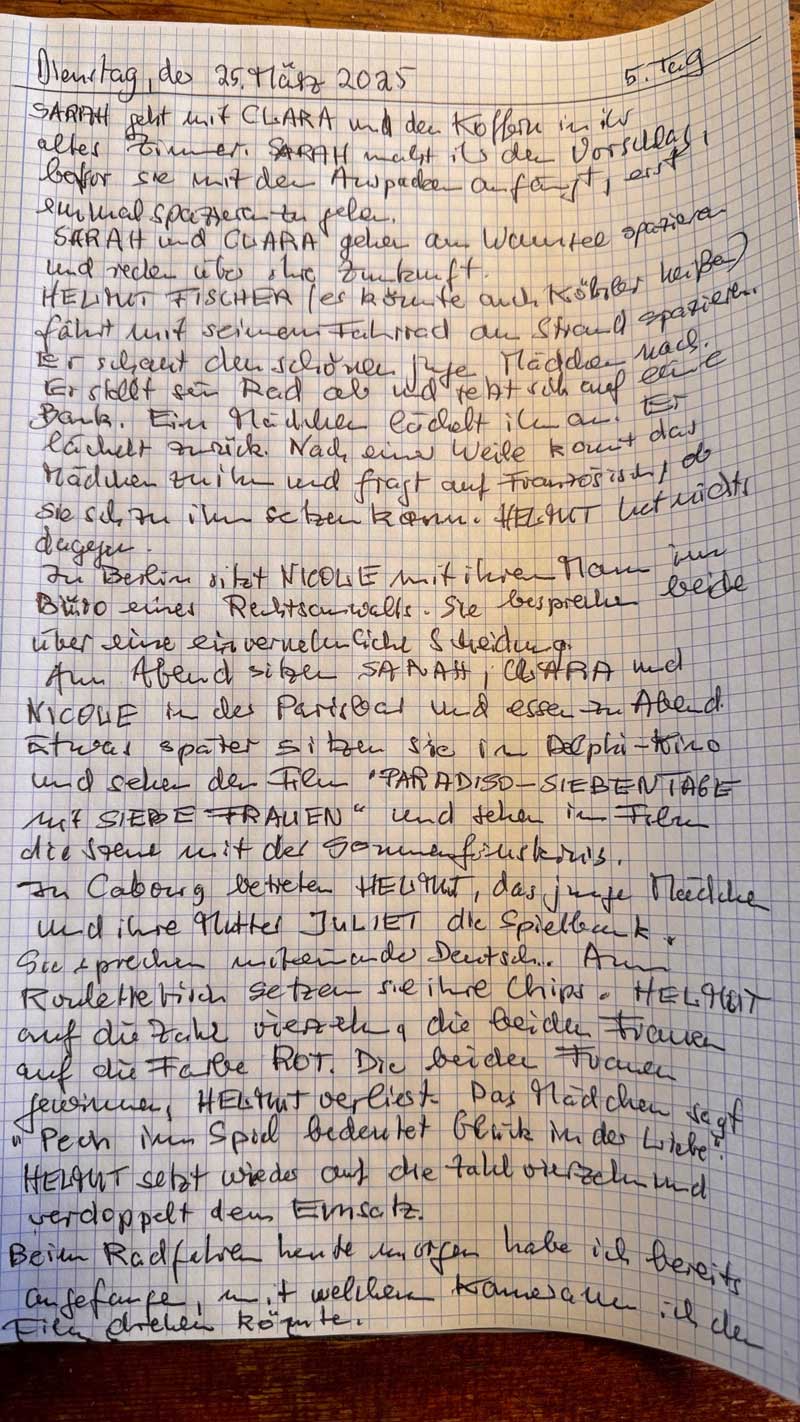 Dienstag, der 25. März 2025 5. Tag
SARAH geht mit CLARA und den Koffern in ihr
altes Zimmer. SARAH macht ihr den Vorschlag,
bevor sie mit dem Auspacken anfängt, erst
einmal spazieren zu gehen.
SARAH und CLARA gehen am Wannsee spazieren
und reden über ihre Zukunft.
HELMUT FISCHER (es könnte auch Köhler heißen)
fährt mit seinem Fahrrad am Strand spazieren.
Er schaut den schönen junge Mädchen nach.
Er stellt sein Rad ab und setzt sich auf eine
Bank. Ein Mädchen lächelt ihn an. Er
lächelt zurück. Nach einer Weile kommt das
Mädchen zu ihm und fragt auf Französisch, ob
sie sich zu ihm setzen kann. HELMUT hat nichts
dagegen.
In Berlin sitzt NICOLE mit ihrem Mann im
Büro eines Rechtsanwalts. Sie besprechen beide
über eine einvernehmliche Scheidung.
Am Abend sitzen SARAH, CLARA und
NICOLE in der Parisbar und essen zu Abend.
Etwas später sitzen sie im Delphi-Kino
und sehen den Film "PARADISO-SIEBEN TAGE
MIT SIEBEN FRAUEN" und sehen im Film
die Szene mit der Sonnenfinsternis.
In Cabourg betreten HELMUT, das junge Mädchen
und ihre Mutter JULIET die Spielbank.
Sie sprechen miteinander Deutsch. Am
Roulettetisch setzen sie ihre Chips. HELMUT
auf die Zahl vierzehn, die beiden Frauen
auf die Farbe ROT. Die beiden Frauen
gewinnen, HELMUT verliert. Das Mädchen sagt
"Pech im Spiel bedeutet Glück in der Liebe".
HELMUT setzt wieder auf die Zahl vierzehn und
verdoppelt den Einsatz.
Beim Radfahren heute morgen habe ich bereits
angefangen, mit welchem Kameramann ich den
Film drehen könnte.